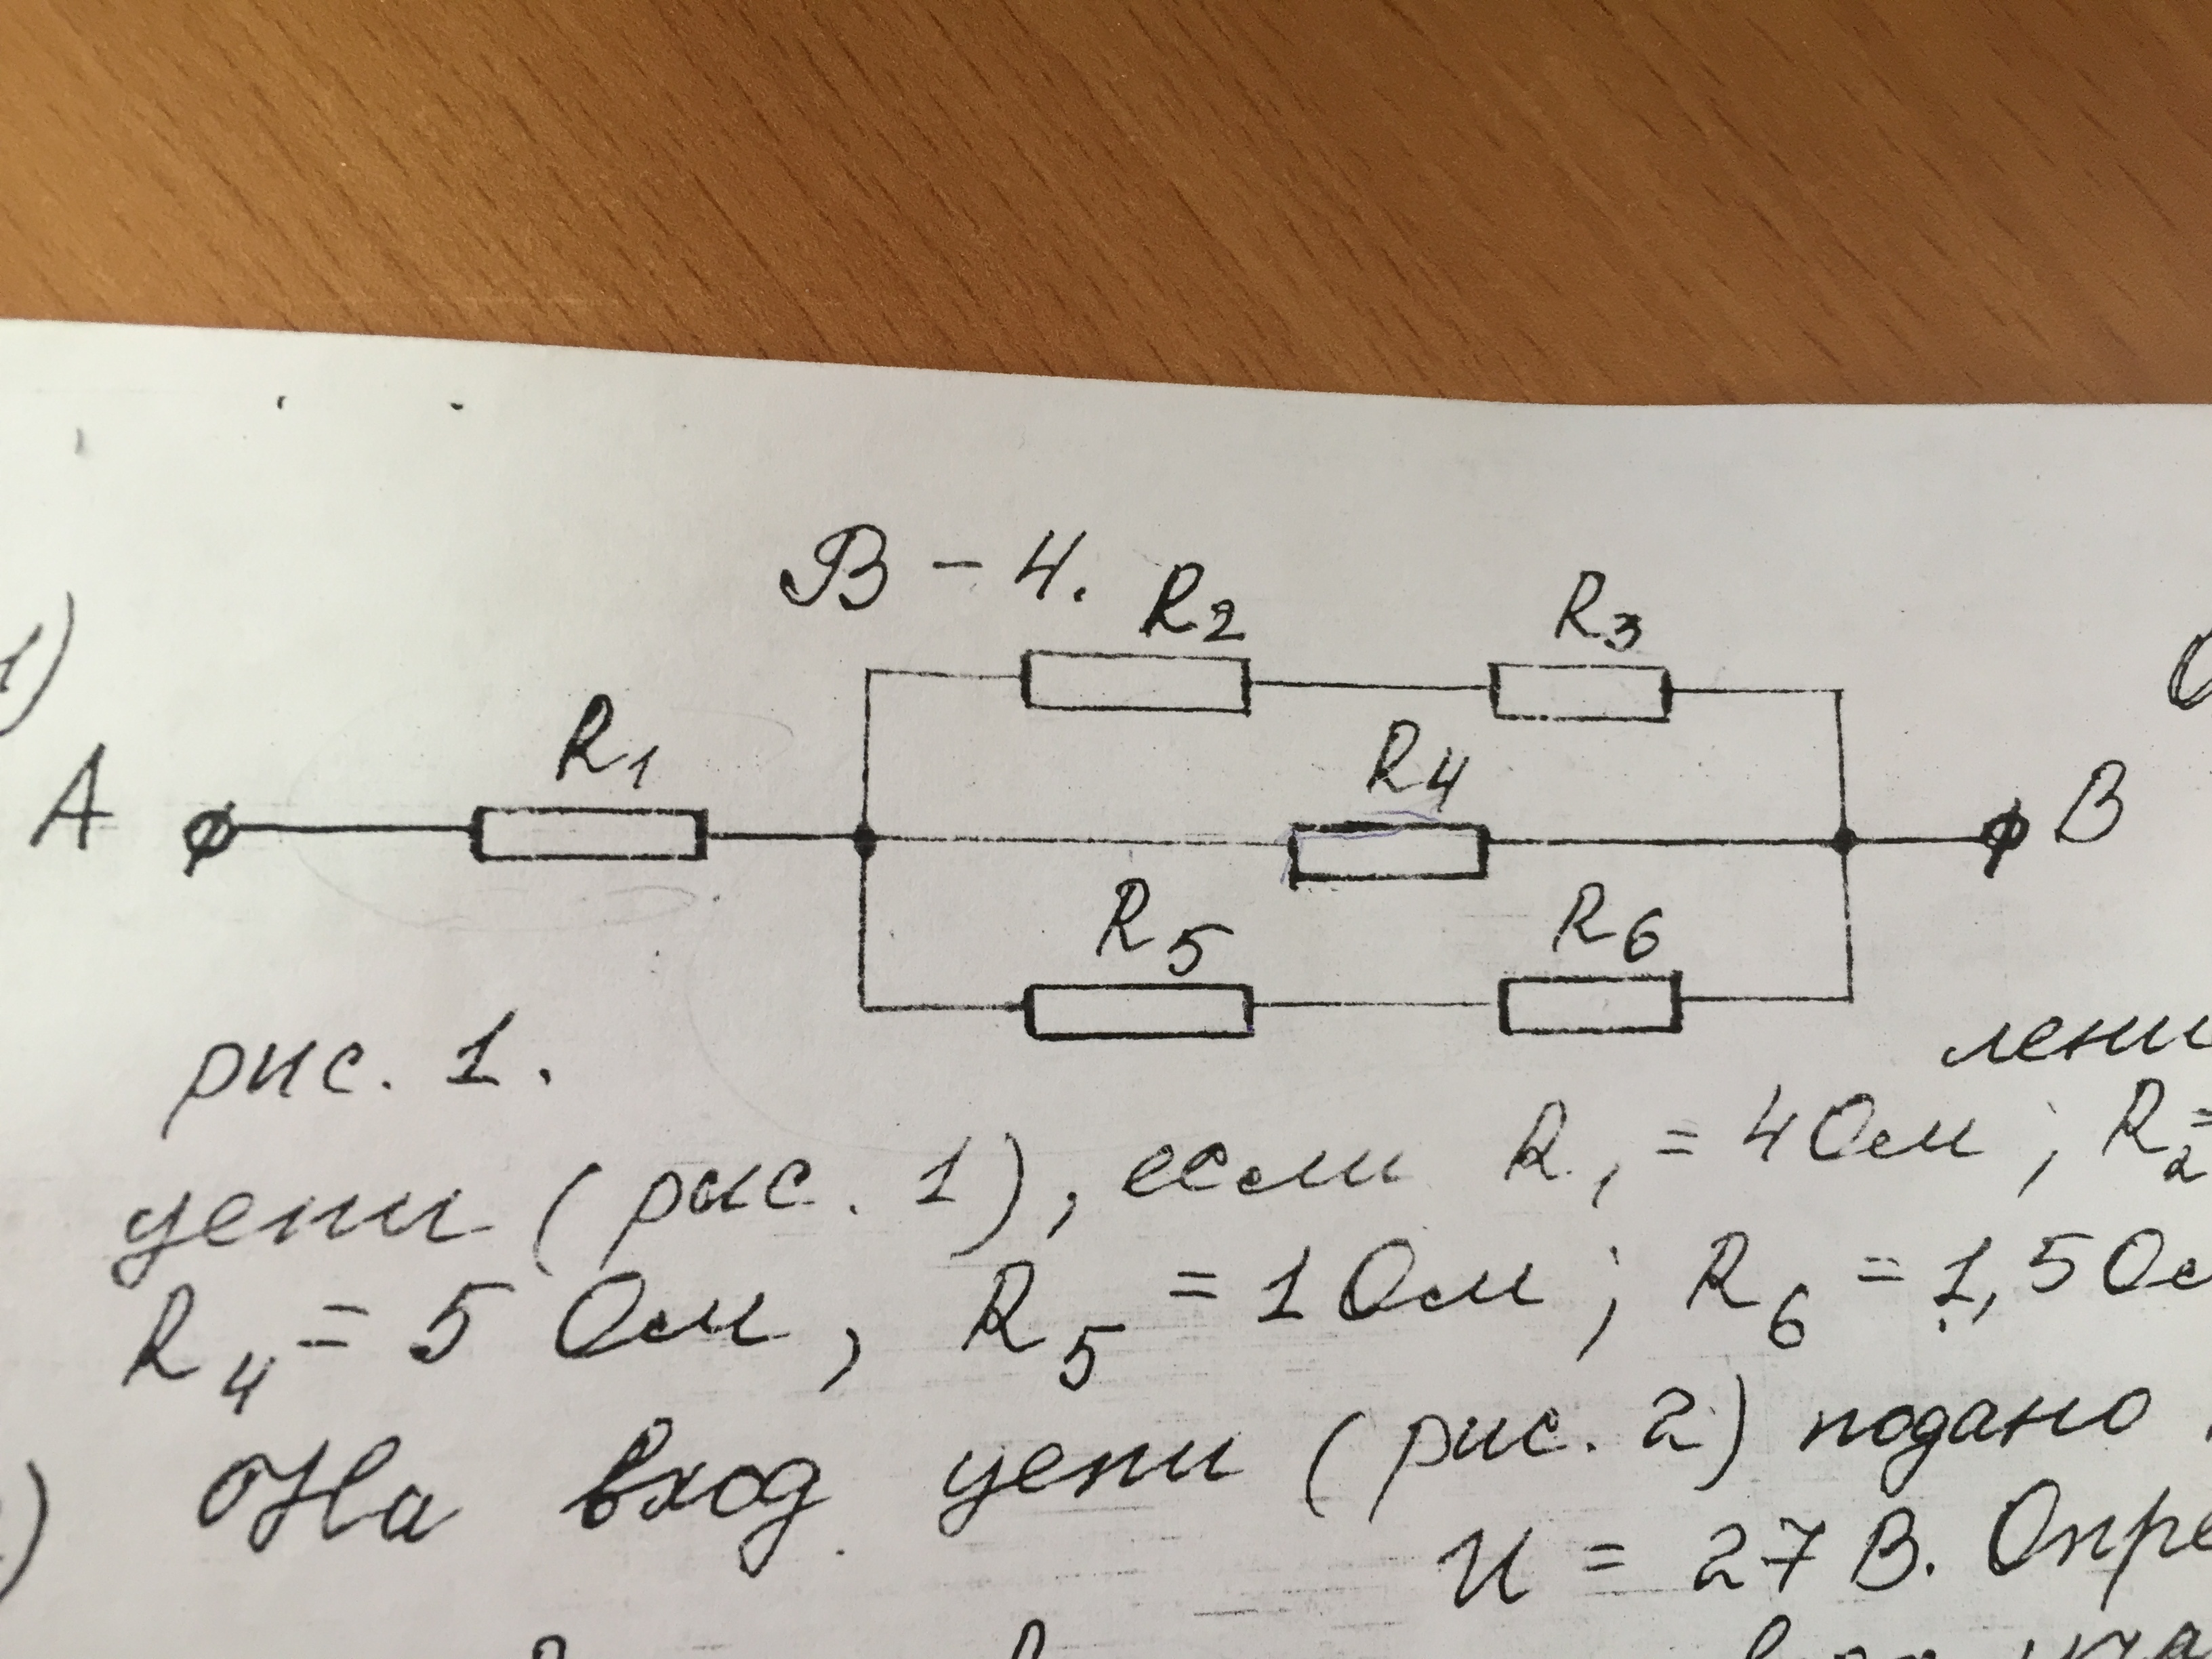 В - 4.
1)
R2 R3
R1 R4
A B
R5 R6
рис. 1.
цепи (рис. 1), если R1 = 4 Ом; R2 =
R4 = 5 Ом, R5 = 1 Ом; R6 = 1,5 Ом
На вход цепи (рис. 2) подано
U = 27 В.